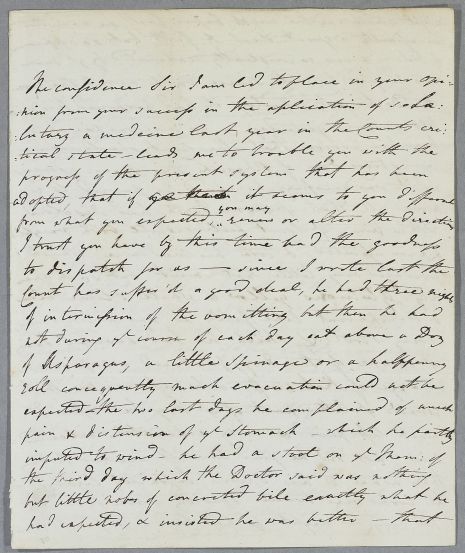 The confidence Sir I am led to place in your opi:
:nion from your success in the aplication of so Sa:
:lutary a medicine last year in the Counts cri:
:tical state – leads me to trouble you with the
progress of the present system that has been
adopted, that if it seems to you different
from what you expected, you may renew or alter the direction
I trust you have by this time had the goodness
to dispatch for us — since I wrote last the
Count has suffer'd a good deal, he had three nights
of intermission of the vomitting but then he had
not during ye course of each day eat above a Doz
of Asparagus, a little Spinage or a halfpenny
roll concequently much evacuation could not be
expected – the two last days he complained of much
pain & distension of ye Stomach which he partly
imputed to wind he had a stool on ye Morn: of
the third day which the Doctor said was nothing
but little nobs of concreted bile exactly what he
had expected, & insisted he was better – that